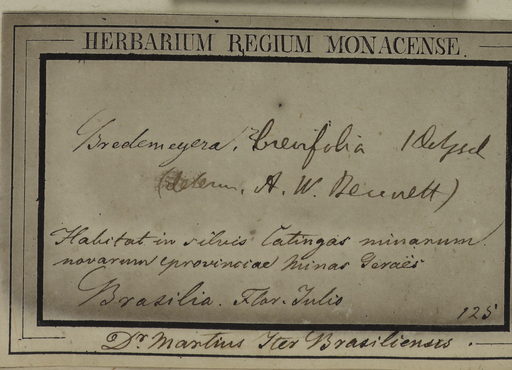 HERBARIUM REGIUM MONACENSE.
Bredemeyera brevifolia
(determ. A. W. Bennett)
Habitat in silvis Catingas minarum
novarum provinciae Minas Geraës
Brasilia. Flor. Julio
125
Dr. Martius Iter Brasiliensis.